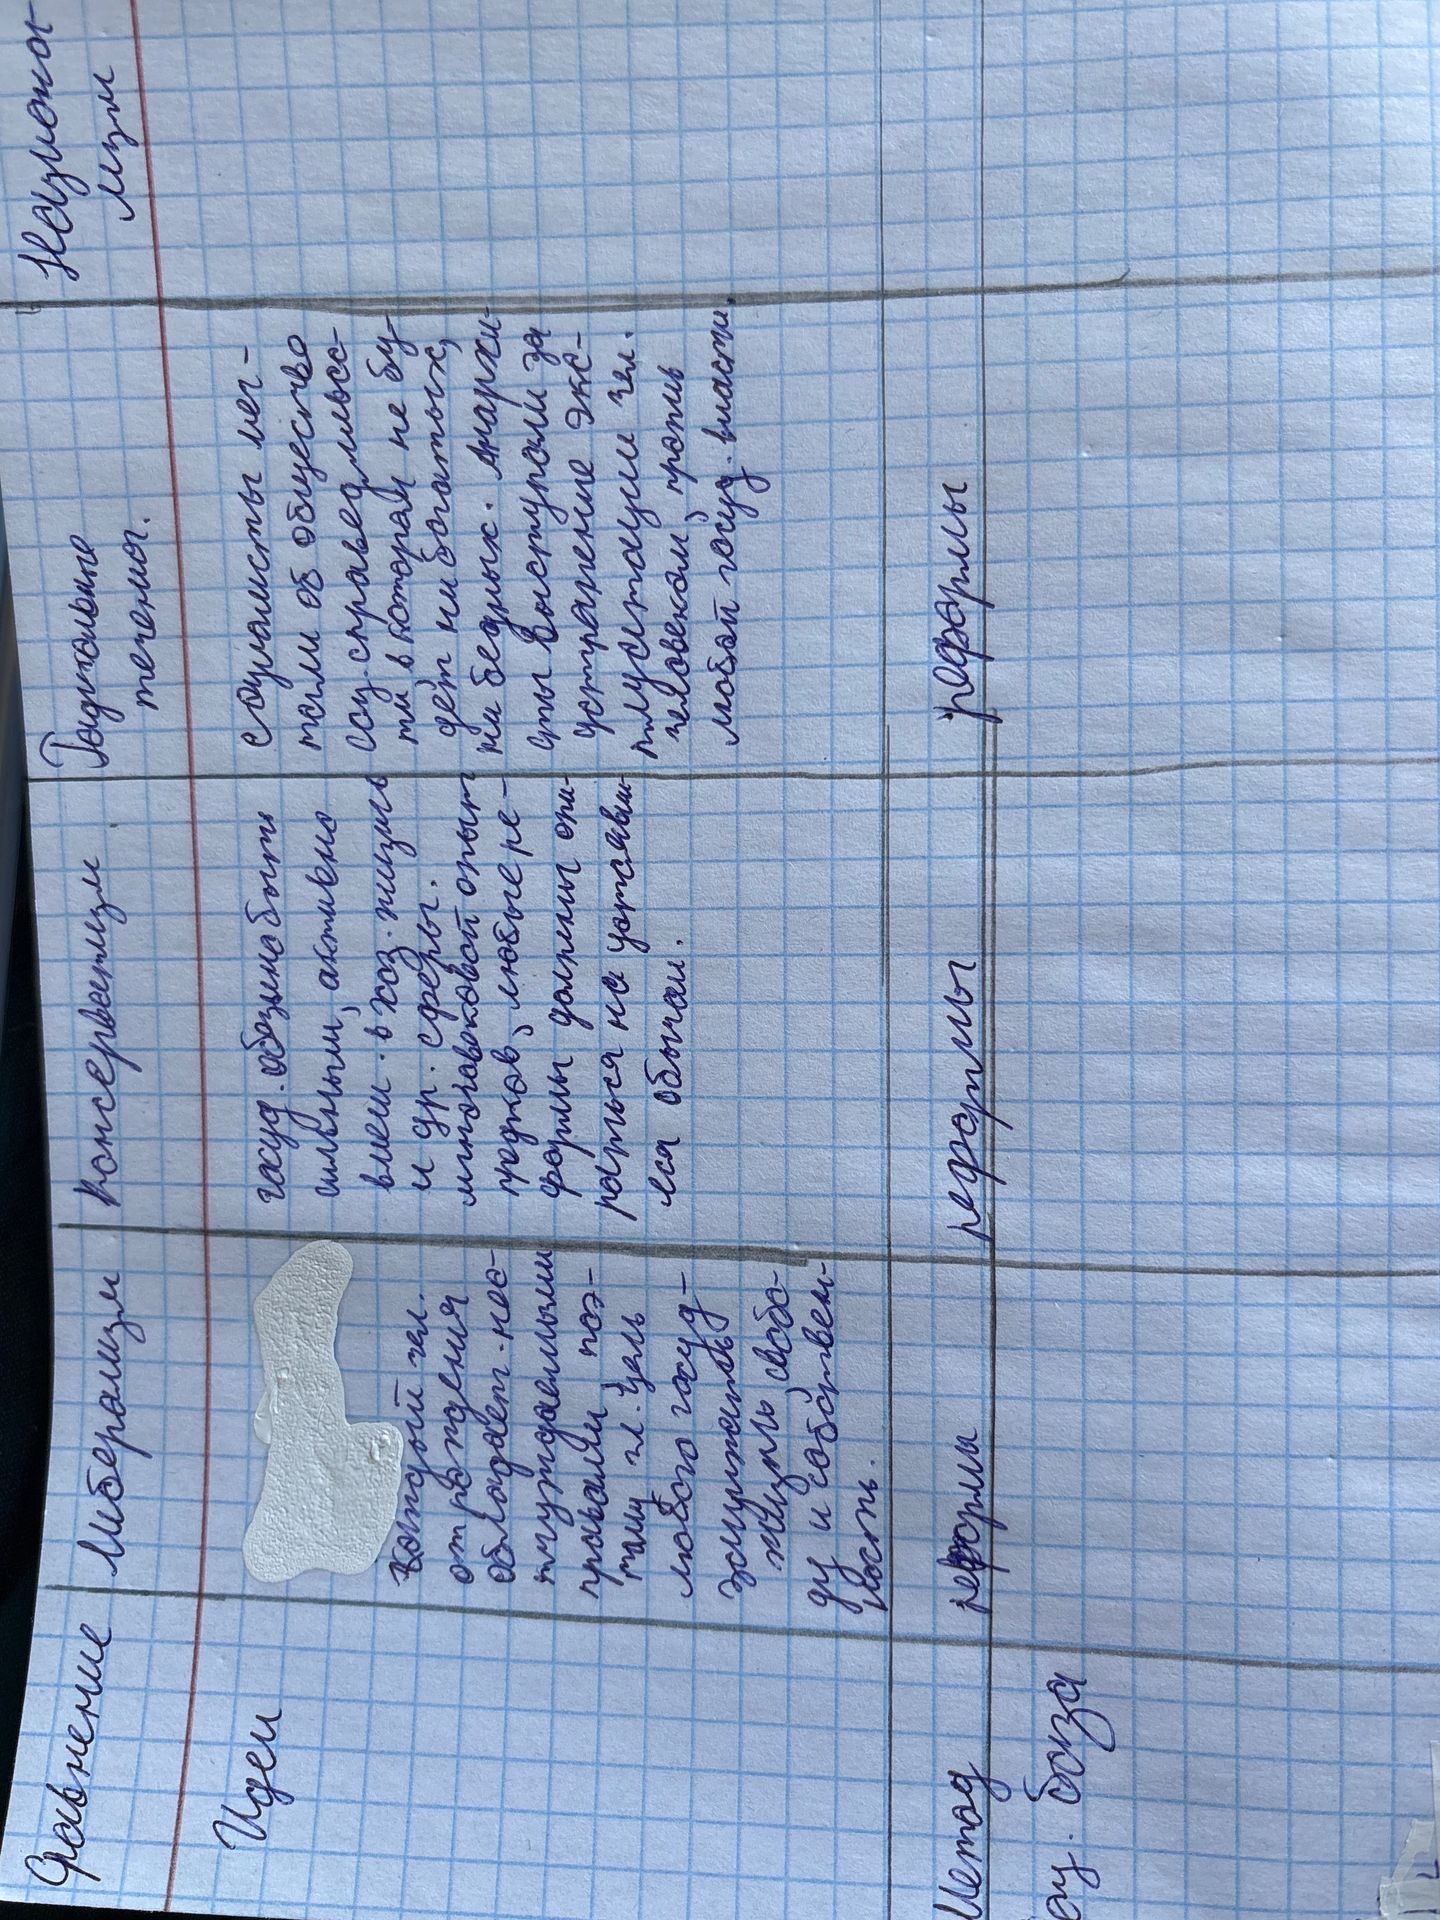 Сравнение
Либерализм
Консерватизм
Радикальные
течения.
Национал
изм
Идеи
Каждый чел.
от рождения
обладает нео-
тчуждаемыми
правами, поэ-
тому гл. цель
любого госуд-
защищать
жизнь, свобо-
ду и собствен-
ность.
госуд. обязано быть
сильным, активно
вмеш. в хоз. жизнь
и др. сферы.
многовековой опыт
предков, любые ре-
формы должны опи-
раться на устоявши-
еся обычаи.
социалисты меч-
тали об обществе
соц. справедливос-
ти в котором не бу-
дет ни богатых,
ни бедных. Анархи-
сты выступали за
устранение экс-
плуатации чел.
человеком, против
любой госуд. власти.
Метод
реформы
реформы
реформы
соц. база